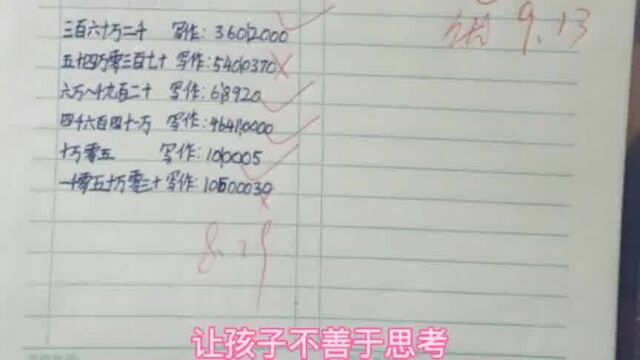 三百六十万二千 写作:3602000
优 9.13
五十四万零三百七十 写作:540370
六万八千九百二十 写作:68920
四千六百四十一万 写作:46410000
十万零五 写作:100005
一千零五十万零三十 写作:10500030
8.29
让孩子不善于思考